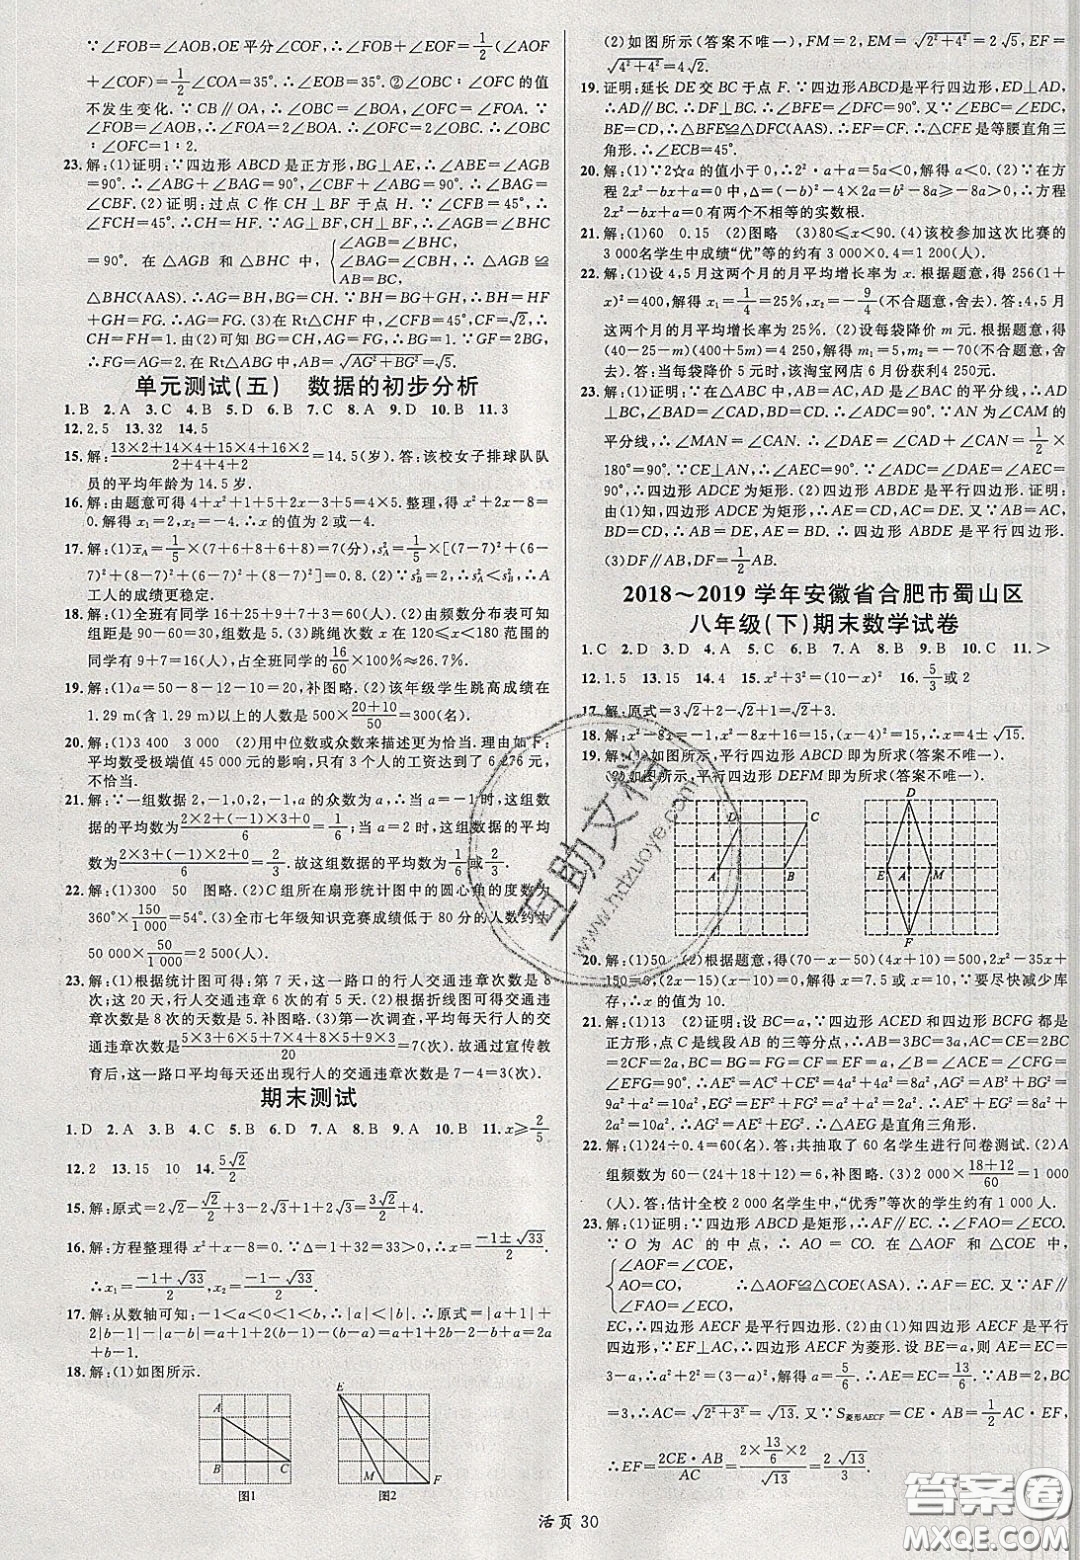 ∵∠FOB=∠AOB,OE平分∠COF,∴∠FOB+∠EOF=1/2(∠AOF
+∠COF)=1/2∠COA=35°.∴∠EOB=35°.②∠OBC∶∠OFC的值
不发生变化.∵CB∥OA,∴∠OBC=∠BOA,∠OFC=∠FOA.∵
∠FOB=∠AOB,∴∠FOA=2∠BOA.∴∠OFC=2∠OBC.∴∠OBC∶
∠OFC=1∶2.
23.解:(1)证明:∵四边形ABCD是正方形,BG⊥AE,∴∠ABE=∠AGB
=90°.∴∠ABG+∠BAG=90°,∠ABG+∠CBF=90°.∴∠BAG=
∠CBF.(2)证明:过点C作CH⊥BF于点H.∵∠CFB=45°,∴
∠FCH=45°.∴CH=HF.∵CH⊥BF,AG⊥BF,∴∠AGB=∠CHB
=90°.在△AGB和△BHC中,{∠AGB=∠BHC,∠BAG=∠HBC,AB=BC,∴△AGB≌
△BHC(AAS).∴AG=BH,BG=CH.∵BH=BG+GH,∴BH=HF
+GH=FG.∴AG=FG.(3)在Rt△CHF中,∠CFB=45°,CF=√2,∴
CH=FH=1.由(2)可知BG=CH,BH=FG,∴BG=HF.∴GF=2BG.
∴FG=AG=2.在Rt△AGB中,AB=√(AG²+BG²)=√5.
单元测试(五) 数据的初步分析
1.B 2.A 3.C 4.B 5.D 6.B 7.D 8.A 9.D 10.B 11.3
12.2.5 13.32 14.5
15.解:(13×2+14×4+15×4+16×2)/(2+4+4+2)=14.5(岁).答:该校女子排球队队
员的平均年龄为14.5岁.
16.解:由题意可得4+x²+1+5+2x-3+5=4×5.整理,得x²+2x-8=
0.解得x₁=2,x₂=-4.∴x的值为2或-4.
17.解:(1)x̄_A=1/5×(7+6+8+6+8)=7(分),s²_A=1/5×[(7-7)²+(6-
7)²+(8-7)²+(6-7)²+(8-7)²]=0.8.(2)∵s²_A<s²_B,∴A
工人的成绩更稳定.
18.解:(1)全班有同学16+25+9+7+3=60(人).(2)由频数分布表可知
组距为:100-80=20,组数是5.(3)跳绳次数x在120≤x<160范围的
同学有9+7=16(人),占全班同学的16/60×100%≈26.7%.
19.解:(1)a=50-8-12-10=20,补图略.(2)该年级学生跳高成绩在
1.29 m(含1.29 m)以上的人数是500×(20+10)/50=300(人).
20.解:(1)3 400 3 000 (2)用中位数或众数来描述更为恰当.理由如下:
平均数受极端值45 000元的影响,只有3个人的工资达到了6 276元,
不恰当.
21.解:∵一组数据2,-1,0,2,-1,a的众数为-1或2,∴当a=-1时,这组数
据的平均数为(2×2+(-1)×3+0)/6=1/6;当a=2时,这组数据的平均
数为(2×3+(-1)×2+0)/6=2/3.故这组数据的平均数为1/6或2/3.
22.解:(1)300 50 图略.(2)C组所在扇形统计图中的圆心角的度数为
360°×150/1 000=54°.(3)全市七年级知识竞赛成绩低于80分的人数约
50 000×50/1 000=2 500(人).
23.解:(1)根据统计图可得:第7天,这一路口的行人交通违章次数是8
次;这20天,行人交通违章6次的有5天.(2)根据折线图可得交通违
章次数是8次的天数是5.补图略.(3)第一次调查,平均每天行人的交
通违章次数是(5×3+6×5+7×4+8×5+9×3)/20=7(次).故通过宣传教
育后,这一路口平均每天还出现行人的交通违章次数是7-4=3(次).
期末测试
1.D 2.A 3.B 4.C 5.B 6.D 7.A 8.D 9.A 10.B 11.x≥2/5
12.2 13.15 10 14.5√2/2
15.解:原式=2√2-√2/2+3-2√3+1+2√3=3√2/2+4.
16.解:方程整理得x²+x-8=0.∵Δ=1+32=33>0,∴x=(-1±√33)/2.
∴x₁=(-1+√33)/2,x₂=(-1-√33)/2.
17.解:从数轴可知:-1<a<0<1<b,∴|a|<|b|.∴原式=|a+1|+
2|b-1|-|a-b|=a+1+2(b-1)-(b-a)=a+1+2b-2-b+a=2a
+b-1.
18.解:(1)如图所示.
A
B
C
图1
E
M
F
图2
(2)如图所示(答案不唯一),FM=2,EM=√(2²+4²)=2√5,EF=
√(4²+4²)=4√2.
19.证明:延长DE交BC于点F.∵四边形ABCD是平行四边形,ED⊥AD,
∴AD∥BC,∠ADE=90°.∴∠BFE=∠DFC=90°.又∵∠ABE=∠EDC,
BE=DC,∴△BFE≌△DFC(AAS).∴EF=CF.∴△CFE是等腰直角三
角形.∴∠ECB=45°.
20.解:(1)∵2☆a的值小于0,∴2²·a+a=5a<0.解得a<0.(2)∵在方
程2x²-bx+a=0中,Δ=(-b)²-4×2a=b²-8a≥-8a>0,∴方程
2x²-bx+a=0有两个不相等的实数根.
21.解:(1)60 0.15 (2)图略 (3)80≤x<90.(4)该校参加这次比赛的
3 000名学生中成绩“优”等的约有3 000×0.4=1 200(人).
22.解:(1)设4,5月这两个月的月平均增长率为x.根据题意,得256(1+
x)²=400,解得x₁=1/4=25%,x₂=-9/4(不合题意,舍去).答:4,5月
这两个月的月平均增长率为25%.(2)设每袋降价m元.根据题意,得
(40-25-m)(400+5m)=4 250.解得m₁=5,m₂=-70(不合题意,舍
去).答:当每袋降价5元时,该淘宝网店6月份获利4 250元.
23.解:(1)证明:∵在△ABC中,AB=AC,AD是∠BAC的平分线,∴AD
⊥BC,∠BAD=∠CAD.∴∠ADC=90°.∵AN为△ABC的外角∠CAM的
平分线,∴∠MAN=∠CAN.∴∠DAN=∠CAD+∠CAN=1/2×
180°=90°.∵CE⊥AN,∴∠AEC=90°.∴∠DAN=∠AEC=∠ADC=
90°.∴四边形ADCE为矩形.(2)四边形ABDE是平行四边形.证明:
由(1)知,四边形ADCE为矩形,则AE=CD,AC=DE.又∵AB=AC,
BD=CD,∴AB=DE,AE=BD.∴四边形ABDE是平行四边形.
(3)DF∥AB,DF=1/2AB.
2018～2019学年安徽省合肥市蜀山区
八年级(下)期末数学试卷
1.C 2.D 3.D 4.A 5.C 6.B 7.A 8.B 9.B 10.C 11.>
12.1.5 13.15 14.4 15.x²+3²=(10-x)² 16.5/3或2
17.解:原式=3√2+2-√2+1=√2+3.
18.解:x²-8x=-1,x²-8x+16=15,(x-4)²=15,∴x=4±√15.
19.解:(1)如图所示,平行四边形ABCD即为所求(答案不唯一).
(2)如图所示,平行四边形DEFM即为所求(答案不唯一).
D
C
A
B
D
E
M
F
20.解:(1)50 (2)根据题意,得(70-x-50)(4x+10)=500,2x²-35x+
150=0,(2x-15)(x-10)=0,解得x=7.5或x=10.∵要尽快减少库
存,∴x的值为10.
21.解:(1)13 (2)证明:设BC=a,∵四边形ACED和四边形BCFG都是
正方形,点C是线段AB的三等分点,∴AB=3BC=3a,AC=CE=2BC
=2CF=2a,BC=BG=FG=CF=EF=a,∠ACE=∠G=∠CFG=
∠EFG=90°.∴AE²=AC²+CE²=4a²+4a²=8a²,AG²=AB²+BG²=
9a²+a²=10a²,EG²=EF²+FG²=a²+a²=2a².∵AE²+EG²=8a²+
2a²=10a²,AG²=10a²,∴AE²+EG²=AG².∴△AEG是直角三角形.
22.解:(1)24÷0.4=60(名).答:共抽取了60名学生进行问卷测试.(2)A
组频数为60-(24+18+12)=6,补图略.(3)2 000×(18+12)/60=1 000
(人).答:估计全校2 000名学生中,“优秀”等次的学生约有1 000人.
23.解:(1)证明:∵四边形ABCD是矩形,∴AF∥EC.∴∠FAO=∠ECO.
∵O为AC的中点,∴AO=CO.在△AOF和△COE中,
{∠AOF=∠COE,
AO=CO, ∴△AOF≌△COE(ASA).∴AF=EC.又∵AF∥
∠FAO=∠ECO,
EC,∴四边形AECF是平行四边形.(2)由(1)知四边形AECF是平行四
边形.∵EF⊥AC,∴四边形AECF为菱形.设BE=a,则AE=EC=
3-a,∴a²+2²=(3-a)².∴a=5/6.则AE=EC=13/6.∵AB=2,BC
=3,∴AC=√(2²+3²)=√13.又∵S菱形AECF=CE·AB=1/2AC·EF,
∴EF=(2CE·AB)/AC=(2×13/6×2)/√13=2√13/3.
活页 30
互助文档
www.hdzuoye.com
答案圈
MXQE.COM